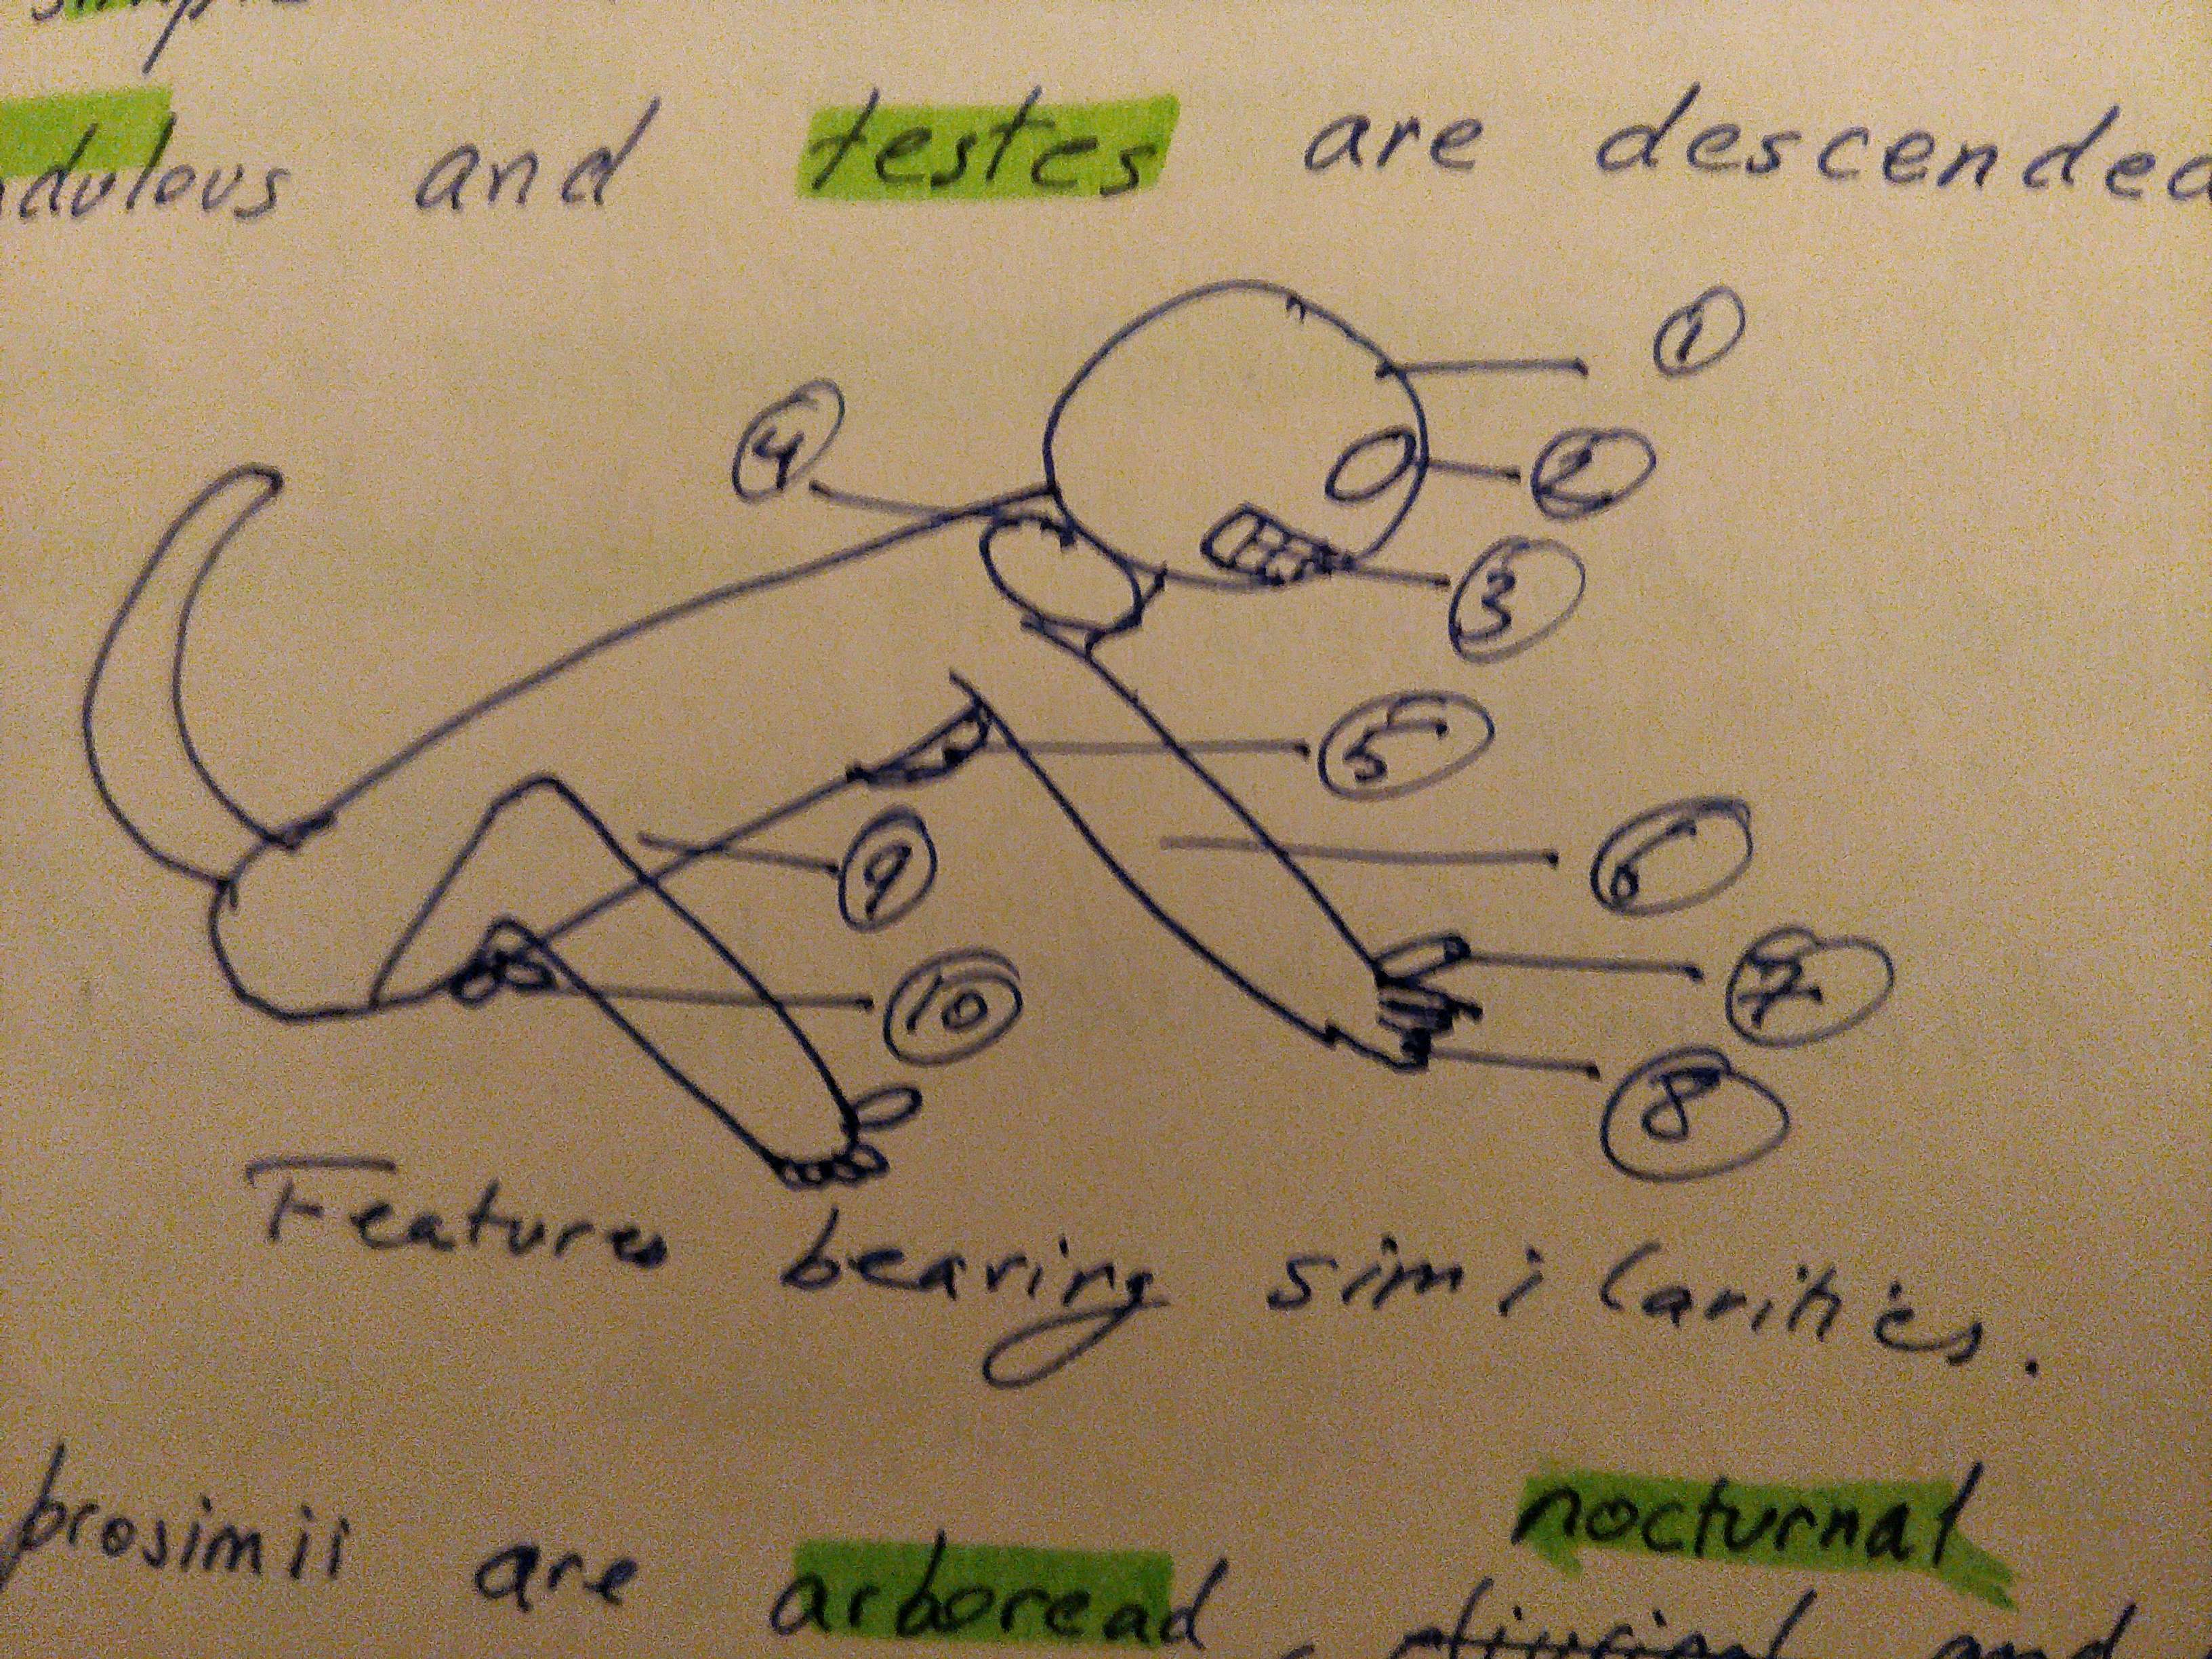 dulous and testes are descended
1
4
2
3
5
6
9
7
10
8
Features bearing similarities.
nocturnal
prosimii are arboread, and